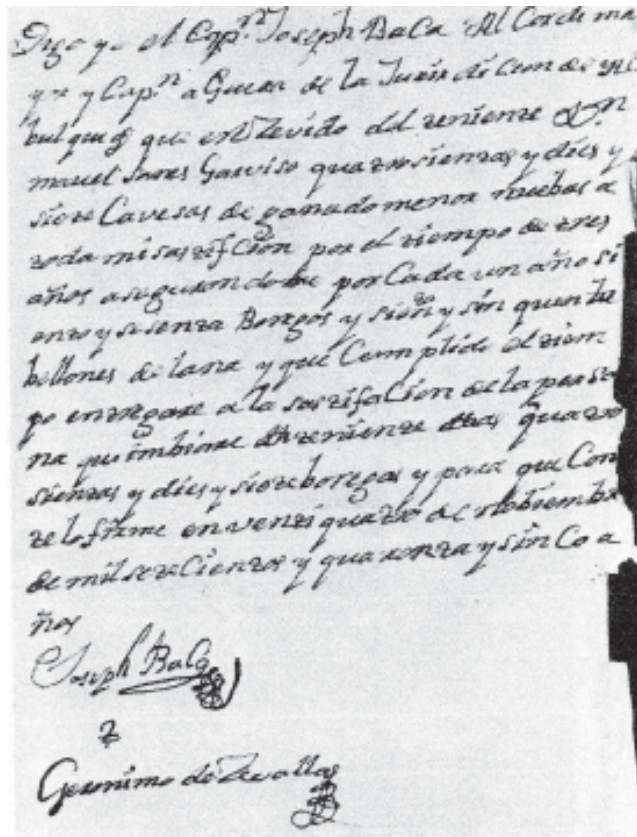 Digo yo el Capn. Joseph Baca Alcorde ma
yor y Capn a Guerra de la Jurisdicion de Al
burquerq que e rrezevido del teniente Dn
manuel Sanes Garviso quatrosientas y dies y
siete Cavesas de ganado menor nuebas a
toda mi satisfCion por el tiempo de tres
años asegurandole por Cada un año si
ento y sesenta Boregos y sien y sinquenta
bellones de lana y que Cumplido el tiem
po entregare a la satisfaCion de la perso
na que imbiare dho teniente dhas quatro
sientas y dies y siete boregas y para que Cons
te lo firme en venti quatro de Nobiembre
de mil seteCientos y quarenta y sinCo a
ños
Joseph Baca
Geronimo de Zevallos